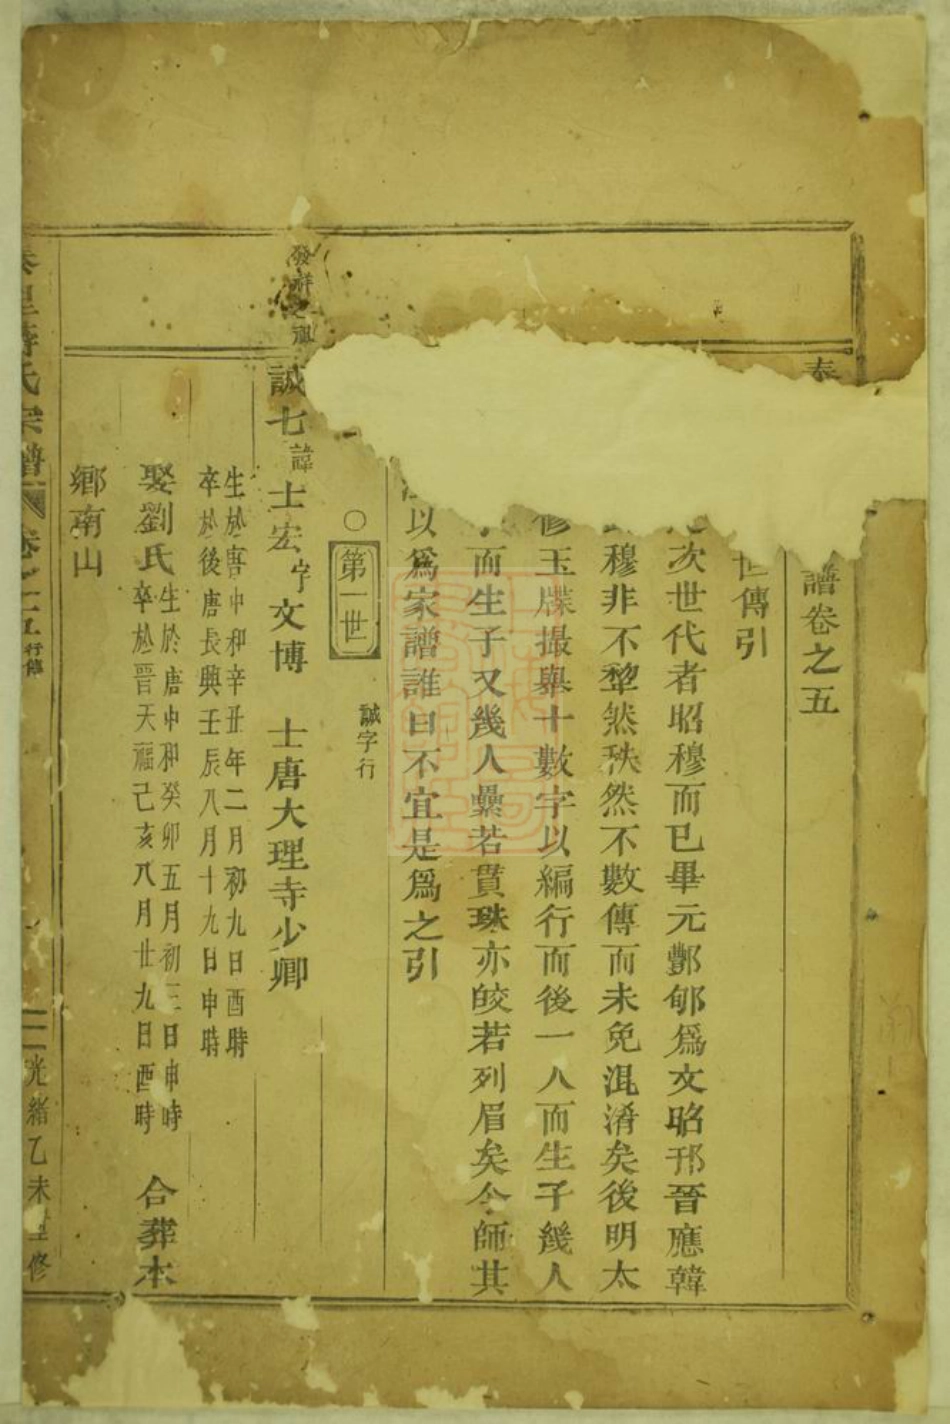 泰
譜卷之五
世傳引
次世代者昭穆而已畢元酆郇爲文昭邘晉應韓
穆非不犂然秩然不數傳而未免混淆矣後明太
修玉牒撮舉十數字以編行而後一人而生子幾人
而生子又幾人纍若貫珠亦皎若列眉矣今師其
以爲家譜誰曰不宜是爲之引
○第一世 誠字行
發祥之祖
誠七諱士宏字文博 士唐大理寺少卿
生於唐中和辛丑年二月初九日酉時
卒於後唐長興壬辰八月十九日申時
娶劉氏生於唐中和癸卯五月初三日申時
卒於晉天福己亥八月廿九日酉時 合葬本
鄉南山
氏宗譜 卷之五 行傳 二 光緒乙未重修